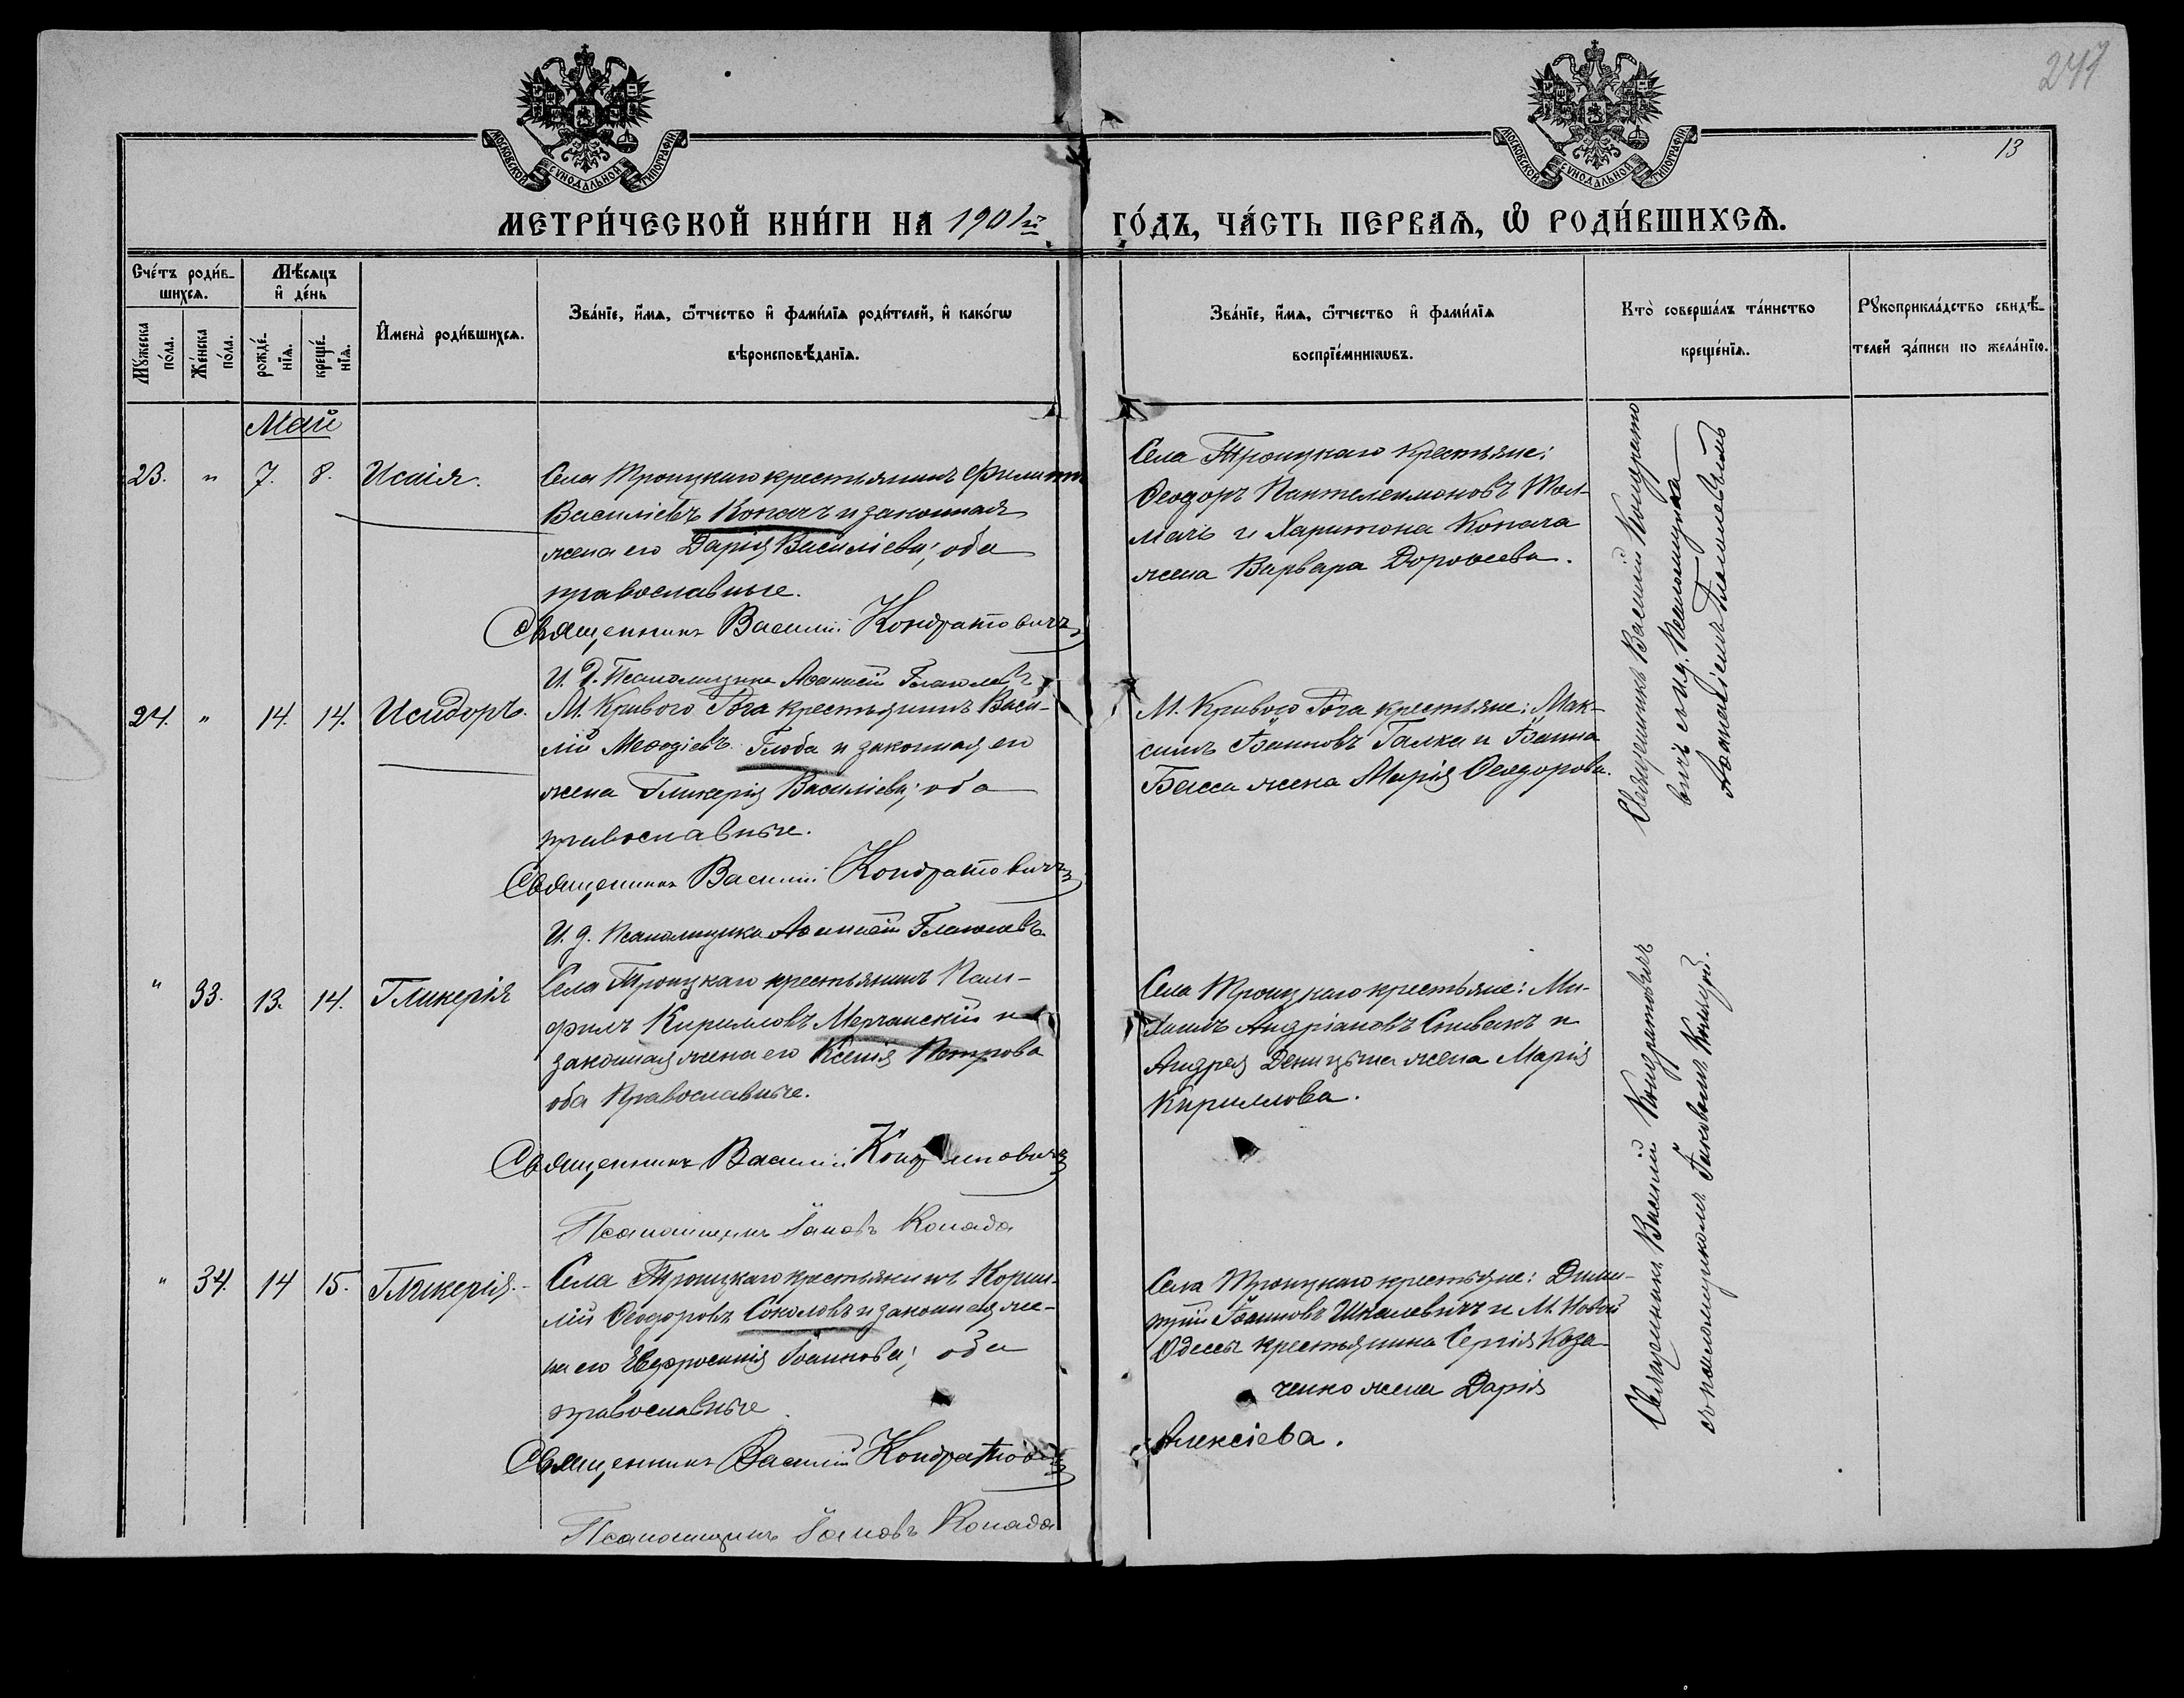 247
13
МОСКОВСКОЙ СѴНОДАЛЬНОЙ ТИПОГРАФІИ
МОСКОВСКОЙ СѴНОДАЛЬНОЙ ТИПОГРАФІИ
МЕТРИ́ЧЕСКОЙ КНИ́ГИ НА 1901й ГО́ДЪ, ЧА́СТЬ ПЕРВАѦ, Ѡ҆ РОДИ́ВШИХСѦ.
Сче́тъ роди́в-
шихсѧ.
Мꙋ́жеска
по́ла.
Же́нска
по́ла.
Мѣ́сѧцъ
и҆ де́нь
рожде́-
нїѧ.
креще́-
нїѧ.
И҆мена̀ роди́вшихсѧ.
Зва́нїе, и҆́мѧ, ѻ҆́тчество и҆ фами́лїѧ роди́телей, и҆ како́гѡ
вѣроисповѣ́данїѧ.
Зва́нїе, и҆́мѧ, ѻ҆́тчество и҆ фами́лїѧ
воспрїе́мникѡвъ.
Кто̀ соверша́лъ та́инство
креще́нїѧ.
Рꙋкоприкла́дство свидѣ́-
телей за́писи по жела́нїю.
Май
23. " 7. 8. Исаія.
Села Троицкаго крестьянинъ Филипп
Василіевъ Копачъ и законная
жена его Дарія Василіева; оба
православные.
Священникъ Василій Кондратовичъ
И. д. Псаломщика Аѳанасій
Села Троицкаго крестьяне:
Ѳеодоръ Пантелеимоновъ Тол-
мачъ и Харитона Копача
жена Варвара Дороѳеева.
Священникъ Василій Кондрато
вичъ съ и. д. Псаломщика
Аѳанасіемъ
24. " 14. 14. Исидоръ.
М. Кривого Рога крестьянинъ Васи-
лій Меѳодіевъ Глоба и законная его
жена Гликерія Василіева; оба
православные.
Священникъ Василій Кондратовичъ
И. д. Псаломщика Аѳанасій
М. Кривого Рога крестьяне: Мак-
симъ Іоанновъ Галка и Іоанна
Басса жена Марія Ѳеодорова.
" 33. 13. 14. Гликерія
Села Троицкаго крестьянинъ Пам-
филъ Кирилловъ Мерчанскій и
законная жена его Ксенія Петрова
оба Православные.
Священникъ Василій Кондратовичъ
Псаломщикъ Іаковъ Конада
Села Троицкаго крестьяне: Ми-
хаилъ Андріановъ Спивакъ и
Андрея жена Марія
Кириллова.
Священникъ Василій Кондратовичъ
съ псаломщикомъ Іаковомъ Конадой.
" 34. 14 15. Гликерія.
Села Троицкаго крестьянинъ Корни-
лій Ѳеодоровъ Соколовъ и законная же-
на его Евфросинія Іоаннова; оба
православные
Священникъ Василій Кондратович
Псаломщикъ Іаковъ Конада
Села Троицкаго крестьяне: Дими-
трій Іоанновъ Шкалевичъ и М. Новой
Одессы крестьянина Сергія Коза-
ченко жена Дарія
Алексіева.